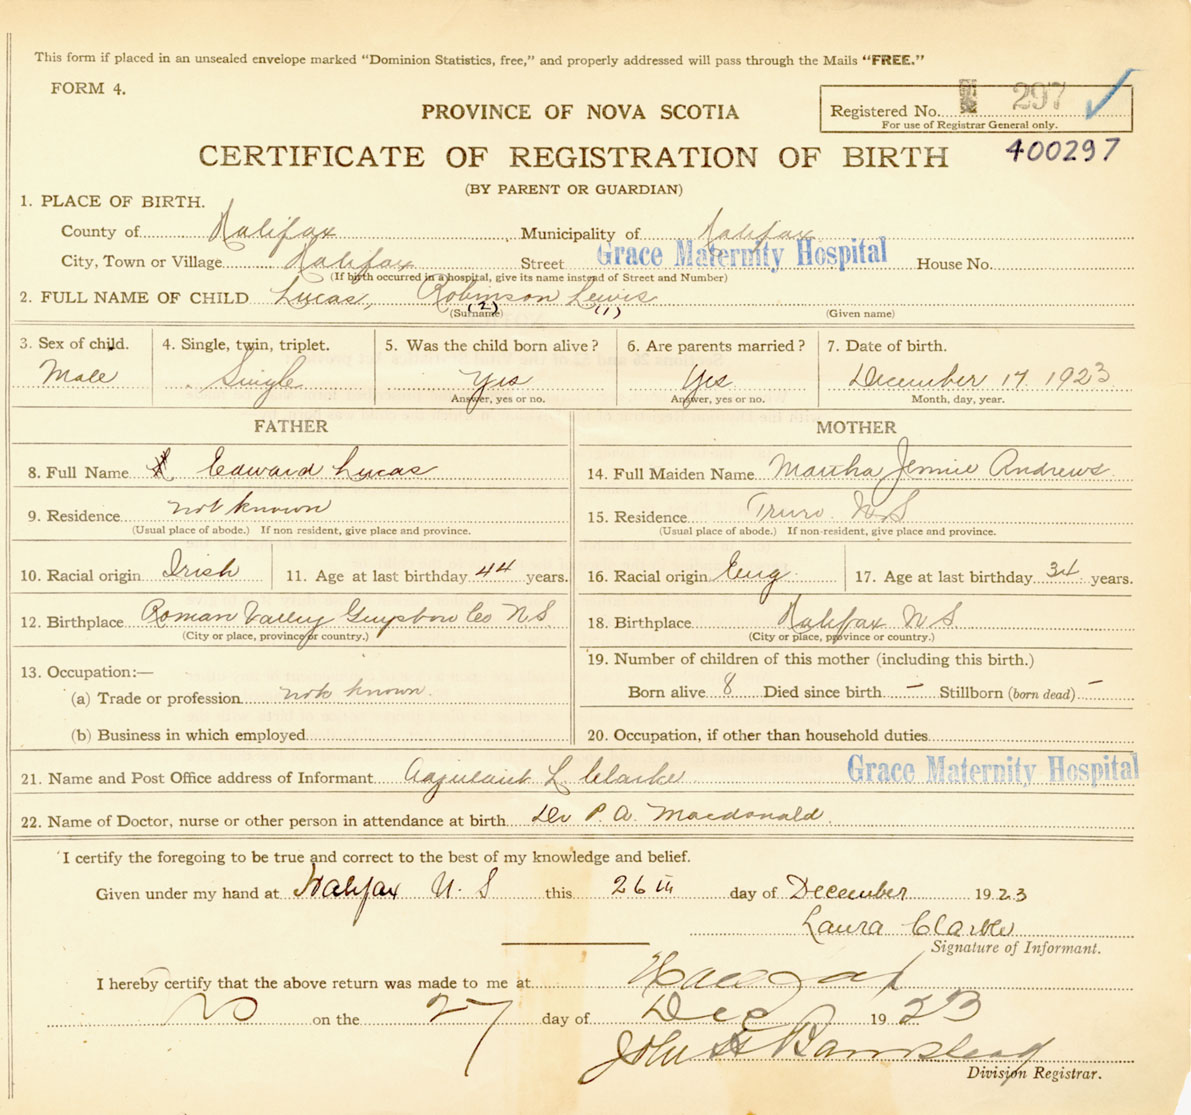 This form if placed in an unsealed envelope marked "Dominion Statistics, free," and properly addressed will pass through the Mails "FREE."
FORM 4.
PROVINCE OF NOVA SCOTIA
Registered No. 297
For use of Registrar General only.
CERTIFICATE OF REGISTRATION OF BIRTH 400297
(BY PARENT OR GUARDIAN)
1. PLACE OF BIRTH.
County of Halifax Municipality of Halifax
City, Town or Village Halifax Street Grace Maternity Hospital House No.
(If birth occurred in a hospital, give its name instead of Street and Number)
2. FULL NAME OF CHILD Lucas, Robinson Lewis
(Surname) (2) (1) (Given name)
3. Sex of child. 4. Single, twin, triplet. 5. Was the child born alive? 6. Are parents married? 7. Date of birth.
Male Single Yes Yes December 17 1923
Answer, yes or no. Answer, yes or no. Month, day, year.
FATHER MOTHER
8. Full Name Edward Lucas 14. Full Maiden Name Martha Jennie Andrews
9. Residence not known 15. Residence Truro N S
(Usual place of abode.) If non resident, give place and province. (Usual place of abode.) If non-resident, give place and province.
10. Racial origin Irish 11. Age at last birthday 44 years. 16. Racial origin Eng. 17. Age at last birthday 34 years.
12. Birthplace Roman Valley Guysboro Co N S. 18. Birthplace Halifax N S
(City or place, province or country.) (City or place, province or country.)
13. Occupation:— 19. Number of children of this mother (including this birth.)
(a) Trade or profession not known. Born alive 8 Died since birth – Stillborn (born dead) –
(b) Business in which employed 20. Occupation, if other than household duties
21. Name and Post Office address of Informant Adjutant L Clarke Grace Maternity Hospital
22. Name of Doctor, nurse or other person in attendance at birth Dr P. A. Macdonald.
I certify the foregoing to be true and correct to the best of my knowledge and belief.
Given under my hand at Halifax N. S this 26th day of December 1923
Laura Clarke
Signature of Informant.
I hereby certify that the above return was made to me at Halifax
NS on the 27 day of Dec 1923
John H Barnstead
Division Registrar.